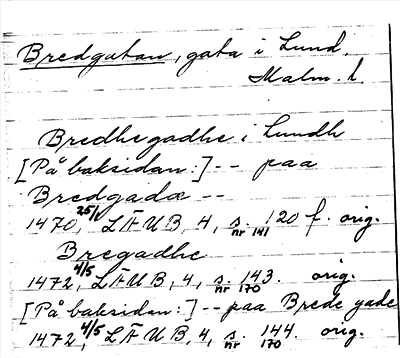 Bredgatan, gata i Lund.
Malm. l.
Bredhegadhe i Lundh
[På baksidan:] -- paa
Bredgadæ --
1470 25/1, LÄUB, 4, s. 120 f. orig.
nr 141
Bregadhe
1472 4/5, LÄUB, 4, s. 143. orig.
nr 170
[På baksidan:] -- paa Brede gade
1472 4/5, LÄUB, 4, s. 144. orig.
nr 170